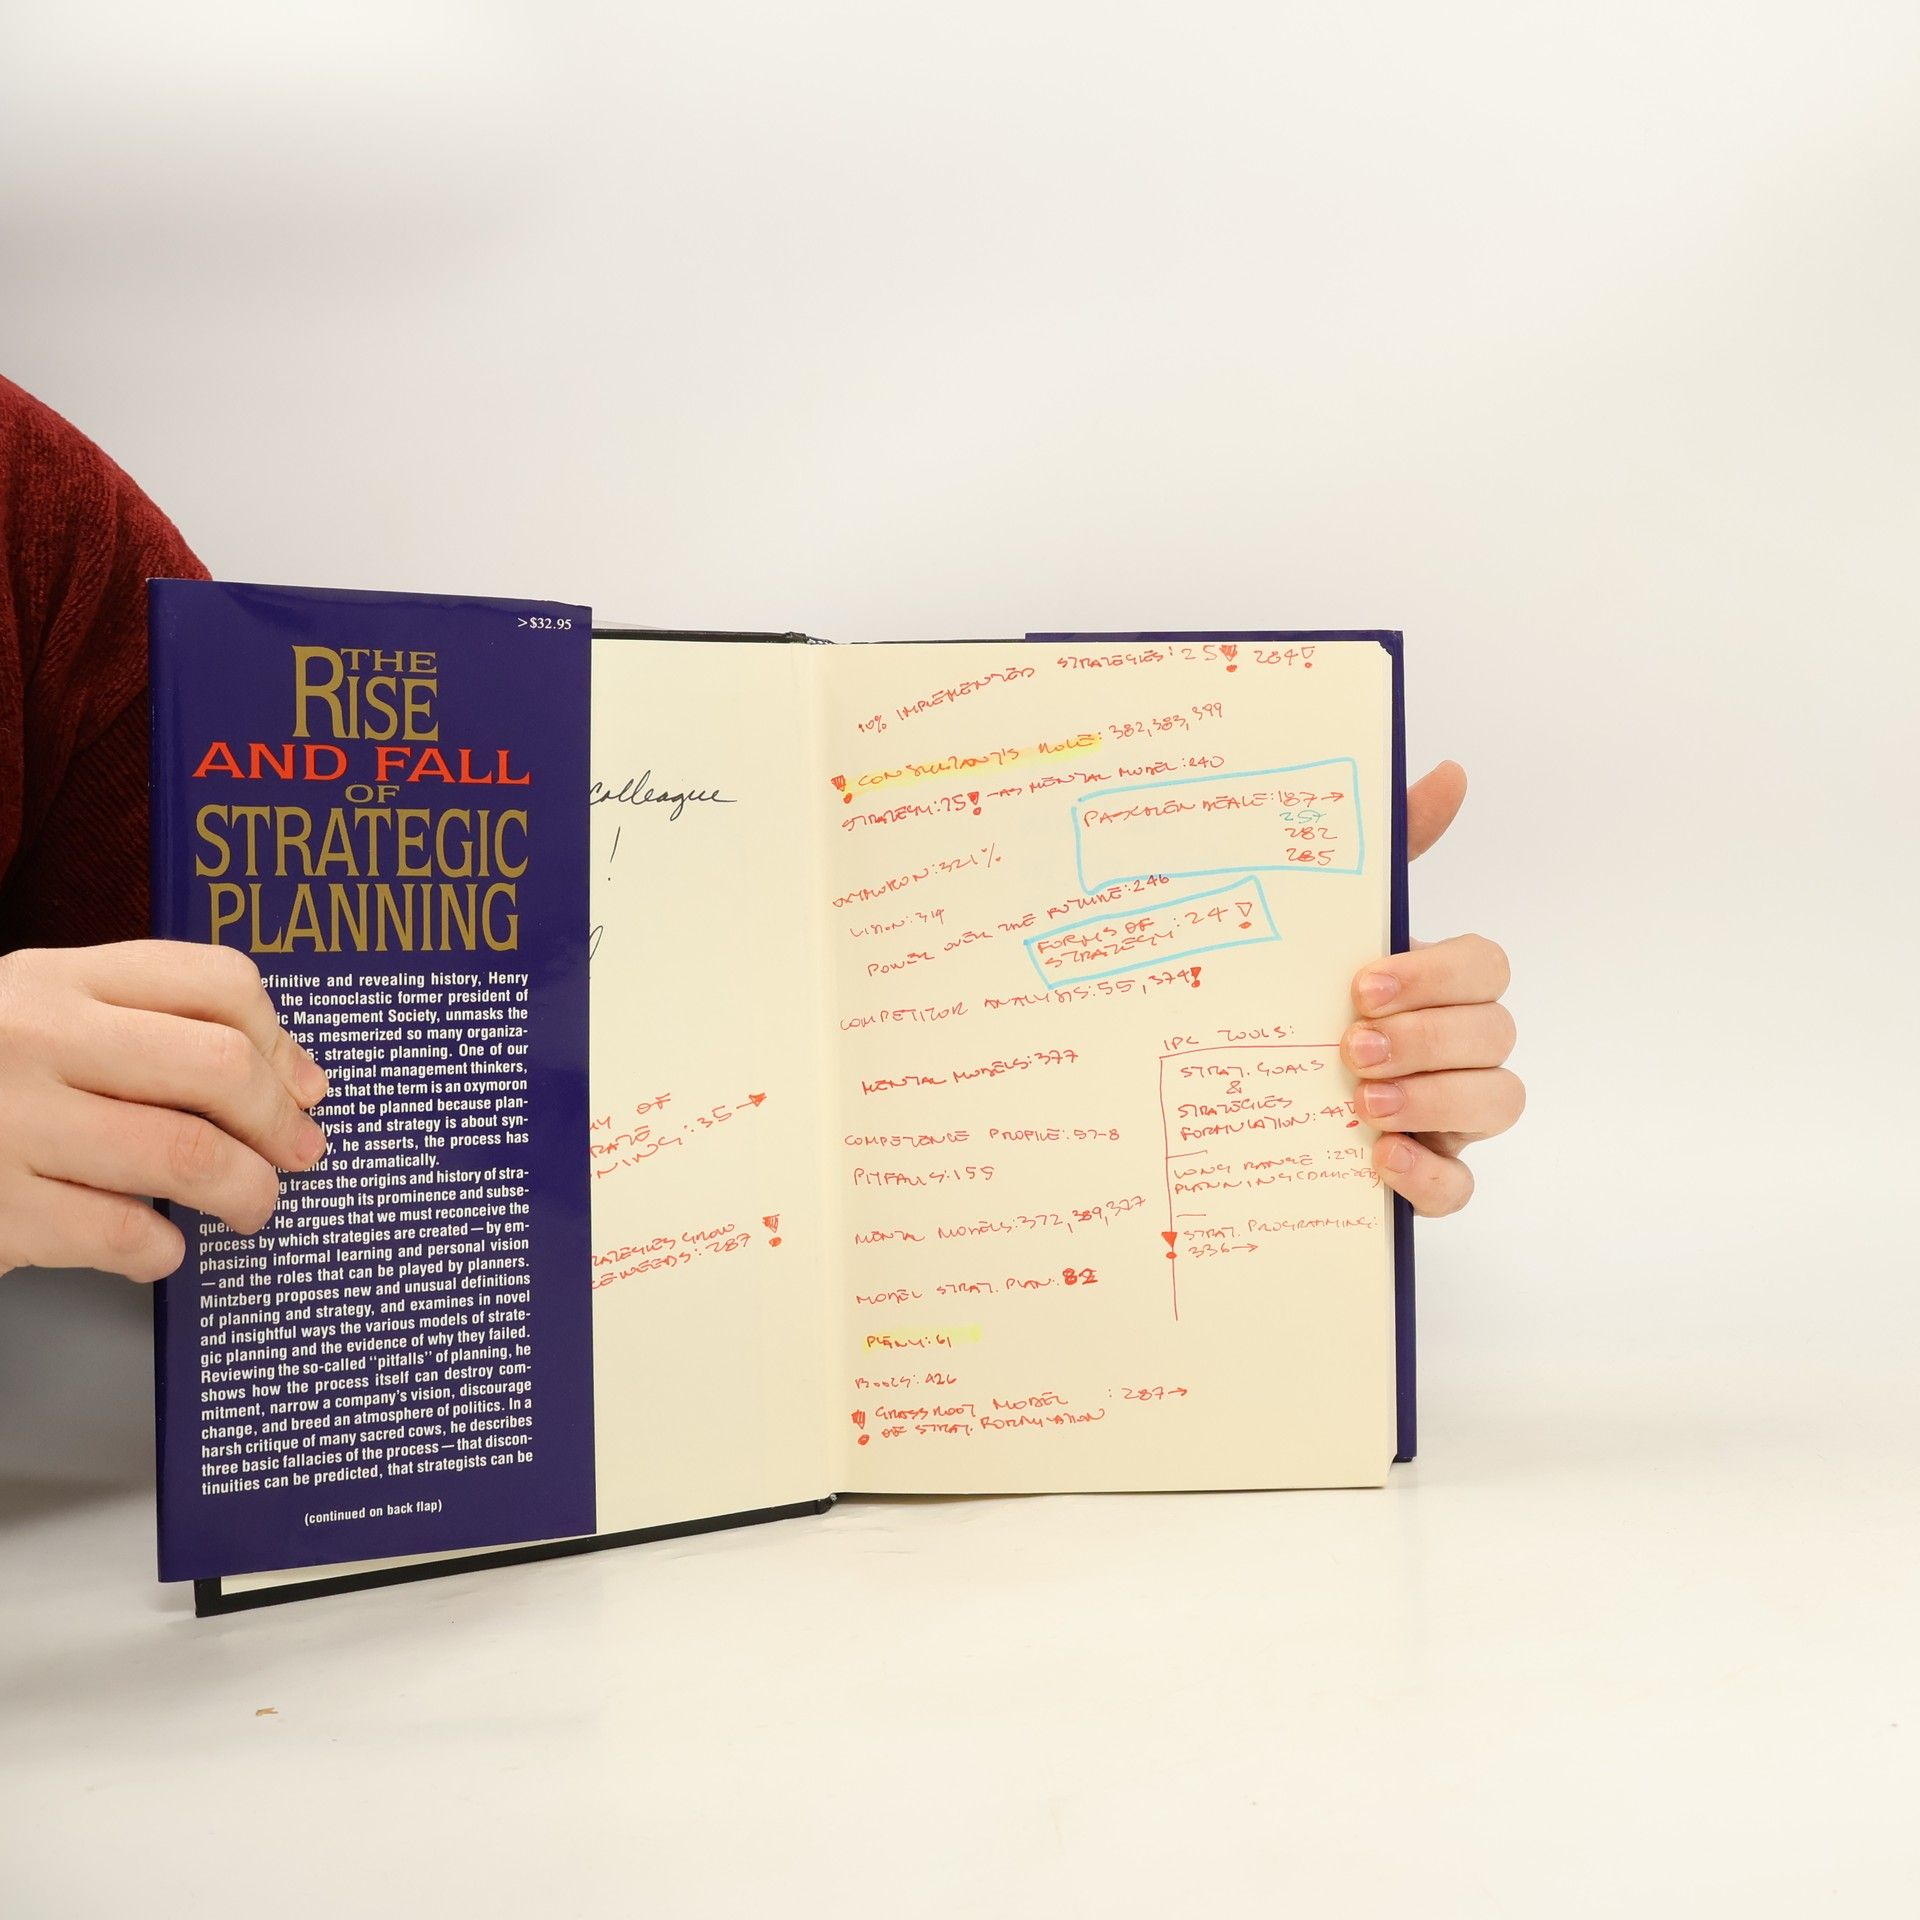 >$32.95
THE
RISE
AND FALL
OF
STRATEGIC
PLANNING
efinitive and revealing history, Henry
the iconoclastic former president of
ic Management Society, unmasks the
has mesmerized so many organiza-
5: strategic planning. One of our
original management thinkers,
es that the term is an oxymoron
cannot be planned because plan-
lysis and strategy is about syn-
y, he asserts, the process has
nd so dramatically.
g traces the origins and history of stra-
ing through its prominence and subse-
que He argues that we must reconceive the
process by which strategies are created — by em-
phasizing informal learning and personal vision
— and the roles that can be played by planners.
Mintzberg proposes new and unusual definitions
of planning and strategy, and examines in novel
and insightful ways the various models of strate-
gic planning and the evidence of why they failed.
Reviewing the so-called "pitfalls" of planning, he
shows how the process itself can destroy com-
mitment, narrow a company's vision, discourage
change, and breed an atmosphere of politics. In a
harsh critique of many sacred cows, he describes
three basic fallacies of the process — that discon-
tinuities can be predicted, that strategists can be
(continued on back flap)
colleague
!
OF
RATE
NING: 35 →
RATEGIES GROW
KE WEEDS: 287 !
10% IMPLEMENTED STRATEGIES: 25! 284!
! CONSULTANT'S ROLE: 382, 383, 399
STRATEGY: 75! - AS MENTAL MODEL: 240
187 →
257
282
285
OXYMORON: 321
VISION: 319
POWER OVER THE FUTURE: 246
FORMS OF
STRATEGY: 24!
COMPETITOR ANALYSIS: 55, 374!
MENTAL MODELS: 377
COMPETENCE PROFILE: 57-8
PITFALLS: 159
MENTAL MODELS: 372, 389, 377
MODEL STRAT. PLAN: 82
61
BOOKS: 426
! GRASSROOT MODEL : 287 →
OF STRAT. FORMULATION
IPC TOOLS:
STRAT. GOALS
&
STRATEGIES
FORMULATION: 44!
LONG RANGE : 291
PLANNING
STRAT. PROGRAMMING:
336 →